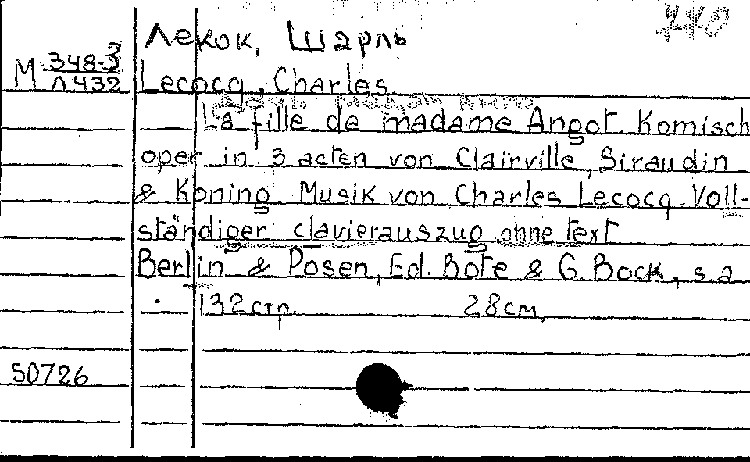 Лекок, Шарль
М 348-3
Л432 Lecocq, Charles.
La fille de madame Angot. Komisch
oper in 3 acten von Clairville, Siraudin
& Koning Musik von Charles Lecocq. Voll-
ständiger clavierauszug ohne text
Berlin & Posen, Ed. Bote & G. Bock, s.a.
132стр. 28см.
50726